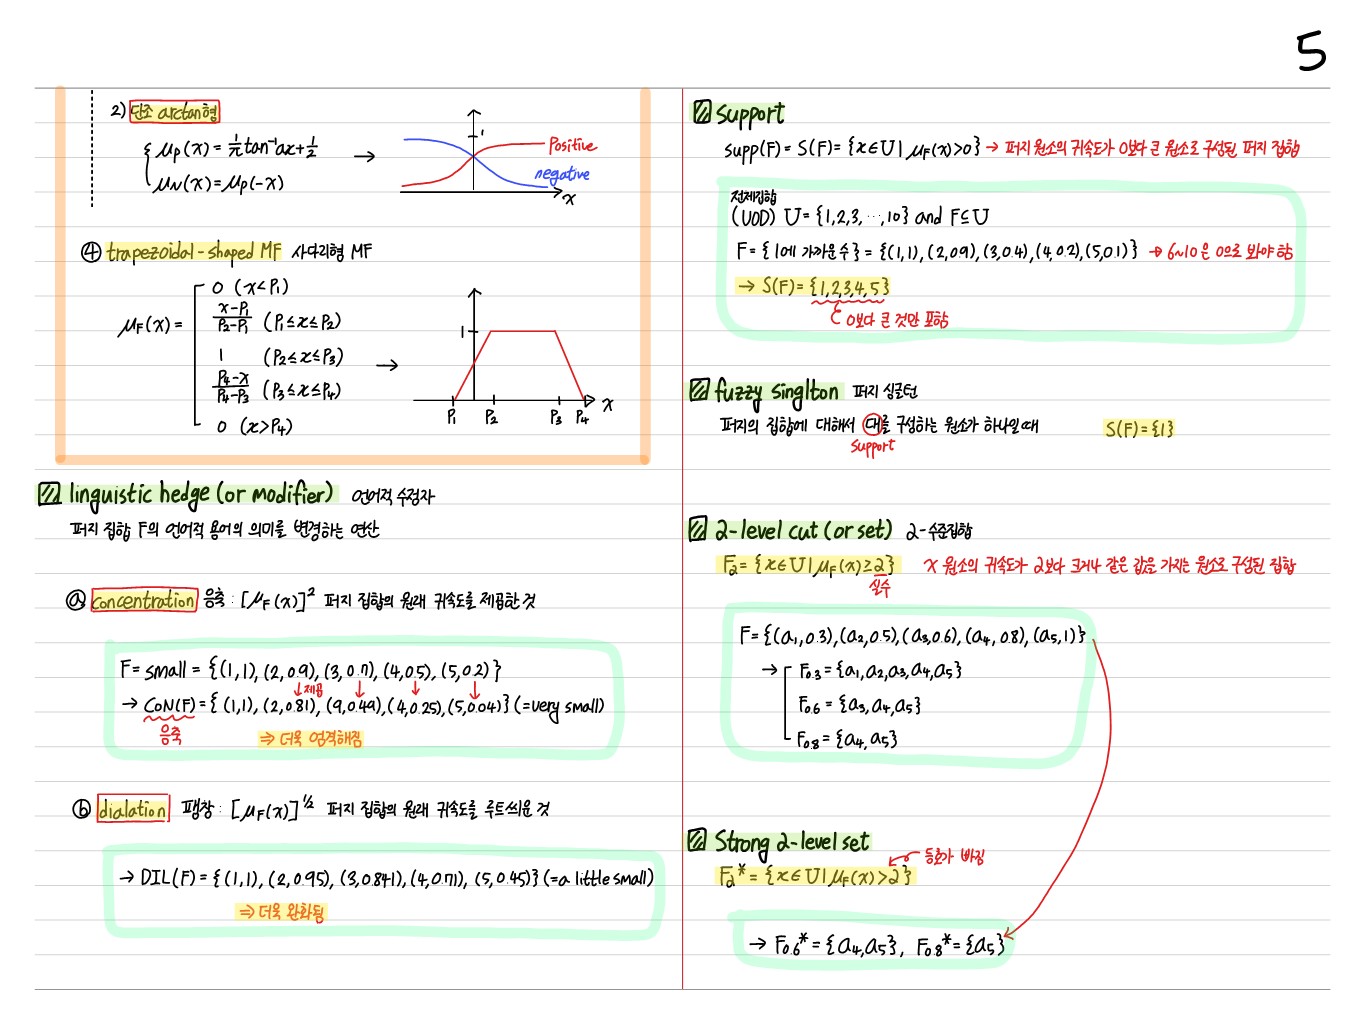 5
2) 단조 arctan형
μP(x) = 1/π tan⁻¹ax + 1/2 →
μN(x) = μP(-x)
1
Positive
negative
x
④ trapezoidal-shaped MF 사다리형 MF
μF(x) =
0 (x<P₁)
x-P₁/P₂-P₁ (P₁≤x≤P₂)
1 (P₂≤x≤P₃) →
P₄-x/P₄-P₃ (P₃≤x≤P₄)
0 (x>P₄)
1
P₁ P₂ P₃ P₄ x
linguistic hedge (or modifier) 언어적 수정자
퍼지 집합 F의 언어적 용어의 의미를 변경하는 연산
ⓐ concentration 응축 : [μF(x)]² 퍼지 집합의 원래 귀속도를 제곱한 것
F = small = {(1,1), (2,0.9), (3,0.7), (4,0.5), (5,0.2)}
↓제곱 ↓ ↓ ↓
→ CON(F) = {(1,1), (2,0.81), (9,0.49), (4,0.25), (5,0.04)} (=very small)
응축 ⇒ 더욱 엄격해짐
ⓑ dialation 팽창 : [μF(x)]^1/2 퍼지 집합의 원래 귀속도를 루트씌운 것
→ DIL(F) = {(1,1), (2,0.95), (3,0.841), (4,0.71), (5,0.45)} (=a little small)
⇒ 더욱 완화됨
support
supp(F) = S(F) = {x∈U | μF(x)>0} → 퍼지 원소의 귀속도가 0보다 큰 원소로 구성된 퍼지 집합
전체집합
(UOD) U = {1,2,3, ⋯, 10} and F⊆U
F = {1에 가까운수} = {(1,1), (2,0.9), (3,0.4), (4,0.2), (5,0.1)} → 6~10은 0으로 봐야 함
→ S(F) = {1,2,3,4,5}
0보다 큰 것만 포함
fuzzy singlton 퍼지 싱글턴
퍼지의 집합에 대해서 대를 구성하는 원소가 하나일때 S(F) = {1}
support
2-level cut (or set) 2-수준집합
F₂ = {x∈U | μF(x)≥2} x 원소의 귀속도가 2보다 크거나 같은 값을 가지는 원소로 구성된 집합
실수
F = {(a₁,0.3), (a₂,0.5), (a₃,0.6), (a₄,0.8), (a₅,1)}
→ F0.3 = {a₁,a₂,a₃,a₄,a₅}
F0.6 = {a₃,a₄,a₅}
F0.8 = {a₄,a₅}
Strong 2-level set
등호가 빠짐
F₂* = {x∈U | μF(x)>2}
→ F0.6* = {a₄,a₅}, F0.8* = {a₅}